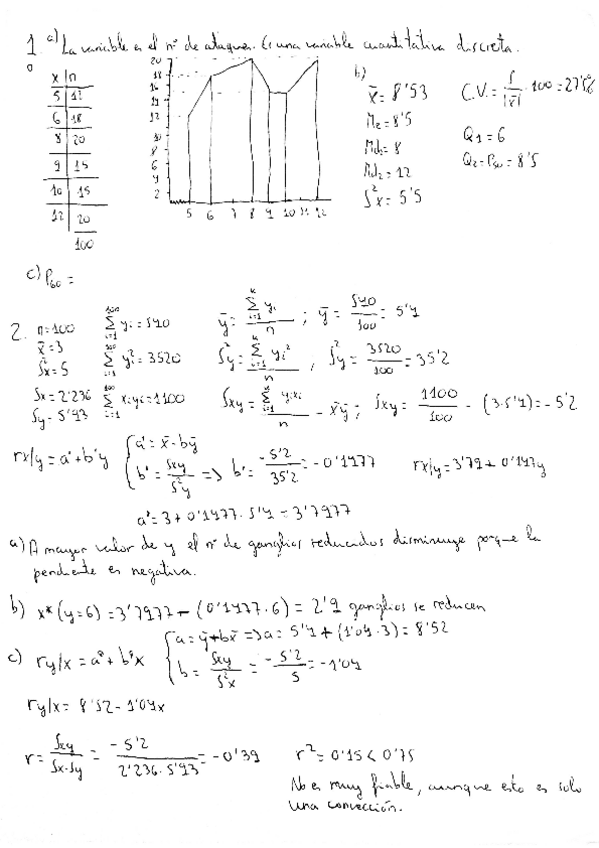 1. a) La variable es el nº de ataques. Es una variable cuantitativa discreta.
x | n
5 | 12
6 | 18
8 | 20
9 | 15
10 | 15
12 | 20
100
20
18
16
14
12
10
8
6
4
2
5 6 7 8 9 10 11 12
b)
x̄ = 8'53
Me = 8'5
Md1 = 8
Md2 = 12
S²x = 5'5
C.V. = S/|x̄| · 100 = 27'5%
Q1 = 6
Q2 = P50 = 8'5
c) P60 =
2. n=100
x̄=3
S²x=5
Sx=2'236
Sy=5'93
100 Σ i=1 yi = 540
100 Σ i=1 y² = 3520
100 Σ i=1 xiyi = 1100
ȳ = Σ yi / n ; ȳ = 540/100 = 5'4
S²y = Σ yi² / n , S²y = 3520/100 = 35'2
Sxy = Σ yixi / n - x̄ȳ ; Sxy = 1100/100 - (3·5'4) = -5'2
rx/y = a' + b'y { a' = x̄ - bȳ
b' = Sxy/S²y => b' = -5'2/35'2 = -0'1477 rx/y = 3'79 + 0'147y
a' = 3 + 0'1477 · 5'4 = 3'7977
a) A mayor valor de y el nº de ganglios reducidos disminuye porque la
pendiente es negativa.
b) x*(y=6) = 3'7977 - (0'1477·6) = 2'9 ganglios se reducen
c) ry/x = a* + b*x { a = ȳ + bx̄ => a = 5'4 + (1'04·3) = 8'52
b = Sxy/S²x = -5'2/5 = -1'04
ry/x = 8'52 - 1'04x
r = Sxy/Sx·Sy = -5'2/2'236·5'93 = -0'39 r² = 0'15 < 0'75
No es muy fiable, aunque esto es solo
una convección.